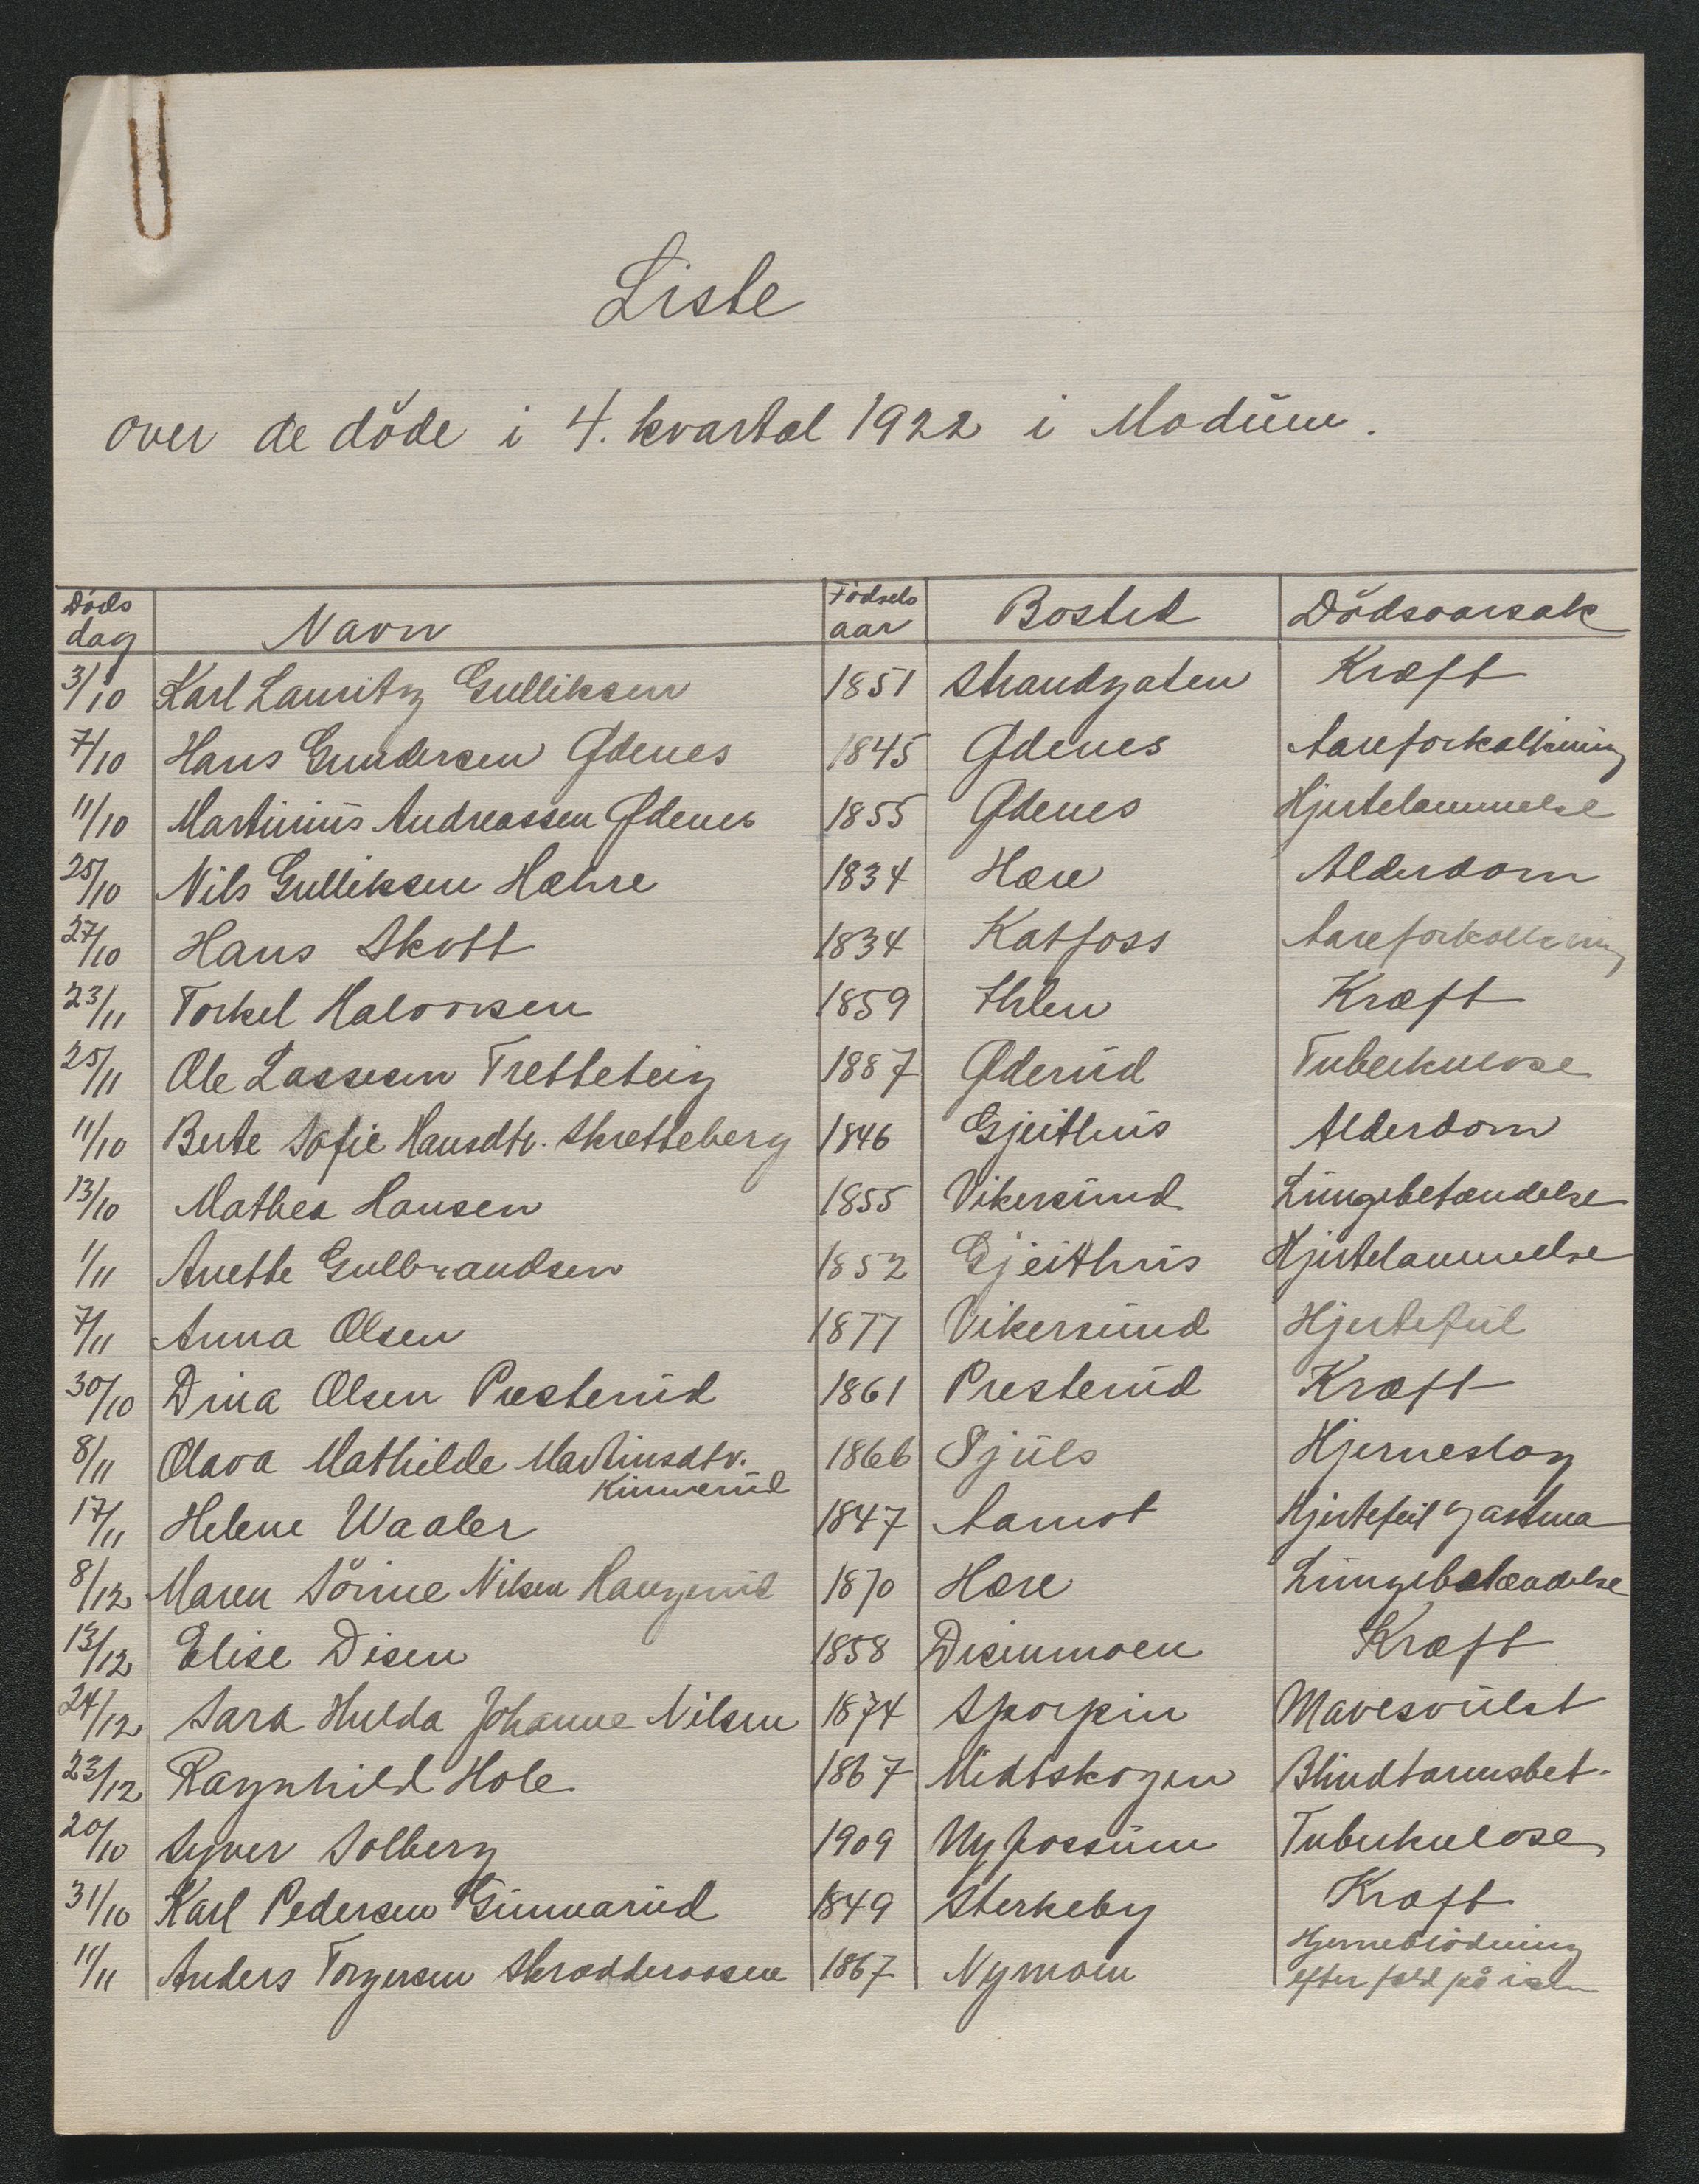 Liste
over de döde i 4. kvartal 1922 i Modum.
Döds dag | Navn | Födsels aar | Bosted | Dödsaarsak
3/10 | Karl Lauritz Gulliksen | 1851 | Strandgaten | Kræft
7/10 | Hans Gundersen Ødenes | 1845 | Ødenes | Aareforkalkning
11/10 | Martinius Andreassen Ødenes | 1855 | Ødenes | Hjertelammelse
25/10 | Nils Gulliksen Hæhre | 1834 | Hære | Alderdom
27/10 | Hans Skott | 1834 | Katfoss | Aareforkalkning
23/11 | Torkel Halvorsen | 1859 | Ihlen | Kræft
25/11 | Ole Lassesen Tretteteig | 1887 | Øderud | Tuberkulose
11/10 | Berte Sofie Hansdtr. Skretteberg | 1846 | Gjeithus | Alderdom
13/10 | Mathea Hansen | 1855 | Vikersund | Lungebetændelse
1/11 | Anette Gulbrandsen | 1852 | Gjeithus | Hjertelammelse
7/11 | Anna Olsen | 1877 | Vikersund | Hjertefeil
30/10 | Dina Olsen Presterud | 1861 | Presterud | Kræft
8/11 | Olava Mathilde Martinsdtr. | 1866 | Sjuls | Hjerneslag
Kinnerud
17/11 | Helene Waaler | 1847 | Aamot | Hjertefeil g astma
8/12 | Maren Sörine Nilsen Haugerud | 1870 | Hære | Lungebetændelse
13/12 | Elise Disen | 1858 | Disenmoen | Kræft
24/12 | Sara Hulda Johanne Nilsen | 1874 | Sporpin | Mavesvulst
23/12 | Ragnhild Hole | 1867 | Midtskogen | Blindtarmsbet.
20/10 | Syver Solberg | 1909 | Nyfossum | Tuberkulose
31/10 | Karl Pedersen Gunnarud | 1849 | Sterkeby | Kræft
11/11 | Anders Torgersen Skradderaasen | 1867 | Nymoen | Hjerneblödning
efter fald på isen